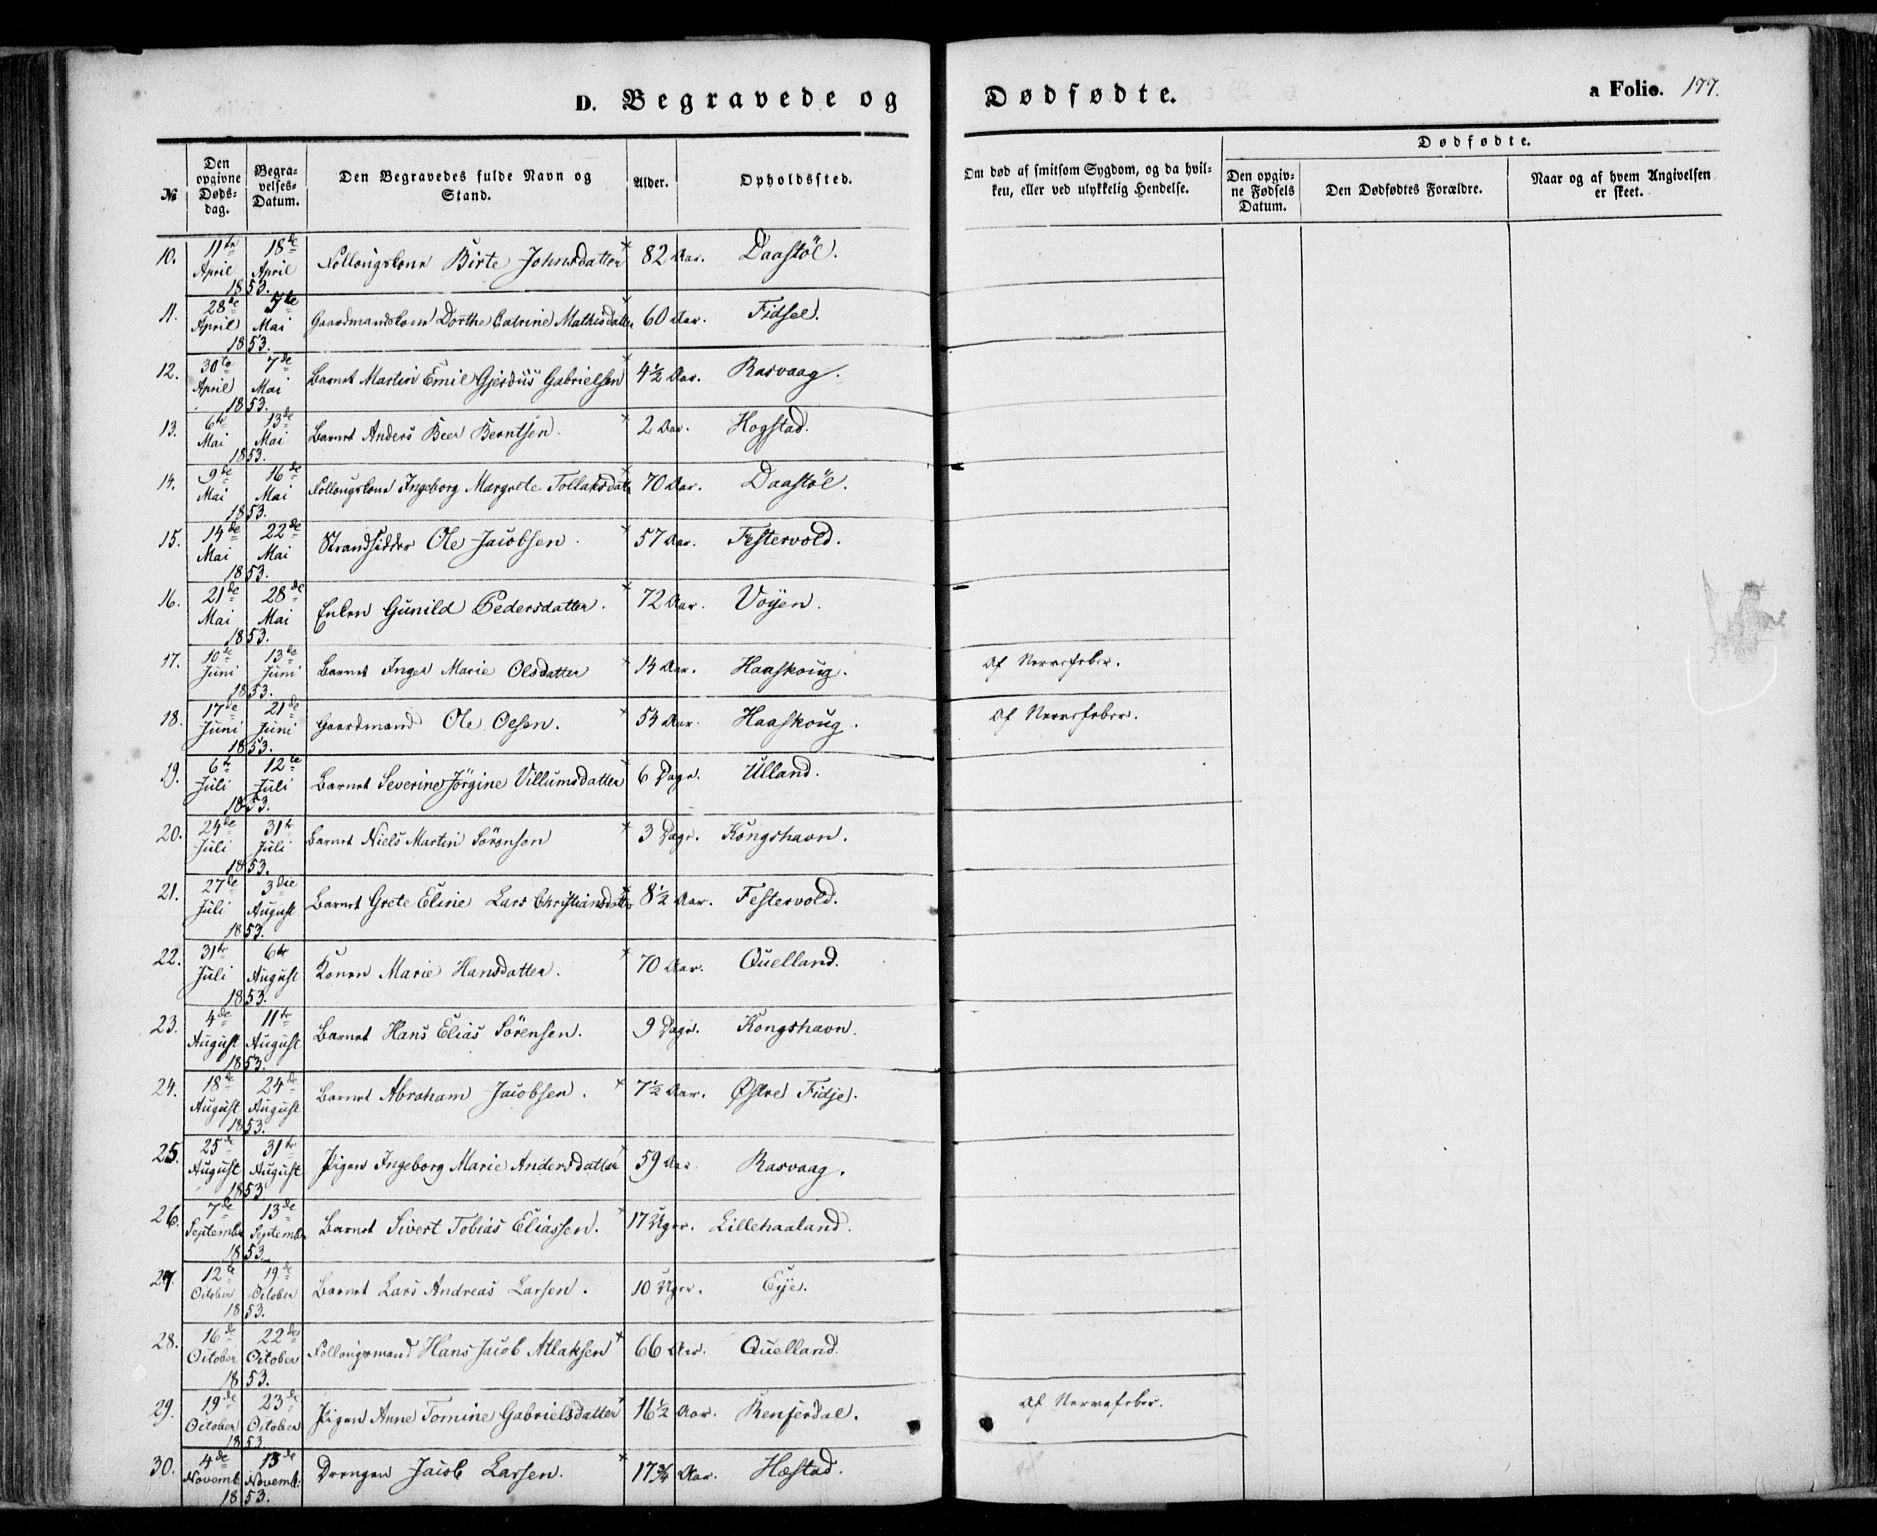 D. Begravede og Dødfødte. a Folio. 177.
№
Den opgivne Døds-dag.
Begra-velses-Datum.
Den Begravedes fulde Navn og Stand.
Alder.
Opholdssted.
Om død af smitsom Sygdom, og da hvil-ken, eller ved ulykkelig Hendelse.
Dødfødte.
Den opgiv-ne Fødsels Datum.
Den Dødfødtes Forældre.
Naar og af hvem Angivelsen er skeet.
10. 11te April 18de April 1853. Follougskone Birte Johnsdatter 82 Aar. Daastöl.
11. 28de April 5te Mai 1853. Gaardmandskone Dorthe Catrine Mathisdatter 60 Aar. Fidsel.
12. 30te April 7de Mai 1853. Barnet Martin Emil Gjerdus Gabrielsen 4½ Aar. Rasvaag.
13. 6te Mai 13de Mai 1853. Barnet Anders Beer Berntsen. 2 Aar. Hogstad.
14. 9de Mai 16de Mai 1853. Follougskone Ingeborg Margrete Tollaksdatt 70 Aar. Daastöl.
15. 14de Mai 22de Mai 1853. Strandsidder Ole Jacobsen. 57 Aar. Festervold.
16. 21de Mai 28de Mai 1853. Enken Gunild Pedersdatter. 72 Aar. Voyen.
17. 10de Juni 13de Juni 1853. Barnet Inger Marie Olsdatter 14 Aar. Haaskoug. Af Nervefeber.
18. 17de Juni 21de Juni 1853. Gaardmand Ole Olsen. 54 Aar. Haaskoug. Af Nervefeber.
19. 6te Juli 12te Juli 1853. Barnet Severine Jörgine Villumsdatter 6 Dage. Ulland.
20. 24de Juli 31te Juli 1853. Barnet Niels Martin Sörensen 3 Dage. Kongshavn.
21. 27de Juli 3die August 1853. Barnet Grete Eline Lars Christiansdatter 8½ Aar. Festervold.
22. 31te Juli 6te August 1853. Konen Marie Hansdatter. 70 Aar. Quelland.
23. 4de August 11te August 1853. Barnet Hans Elias Sörensen. 9 Dage. Kongshavn.
24. 18de August 24de August 1853. Barnet Abraham Jacobsen. 7½ Aar. Østre Fidje.
25. 25de August 31te August 1853 Pigen Ingeborg Marie Andersdatter 59 Aar Rasvaag.
26. 7de September 13de September 1853. Barnet Sivert Tobias Eliassen. 17 Uger. Lillehaaland.
27. 12te October 19de October 1853. Barnet Lars Andreas Larsen. 10 Uger. Eye.
28. 16de October 22de October 1853. Follougsmand Hans Jacob Atlaksen 66 Aar. Quelland.
29. 19de October 23de October 1853 Pigen Anne Tomine Gabrielsdatter 16½ Aar. Renferdal. Af Nervefeber.
30. 4de Novemb. 13de Novemb. 1853. Drengen Jacob Larsen. 17¾ Aar. Hæstad.